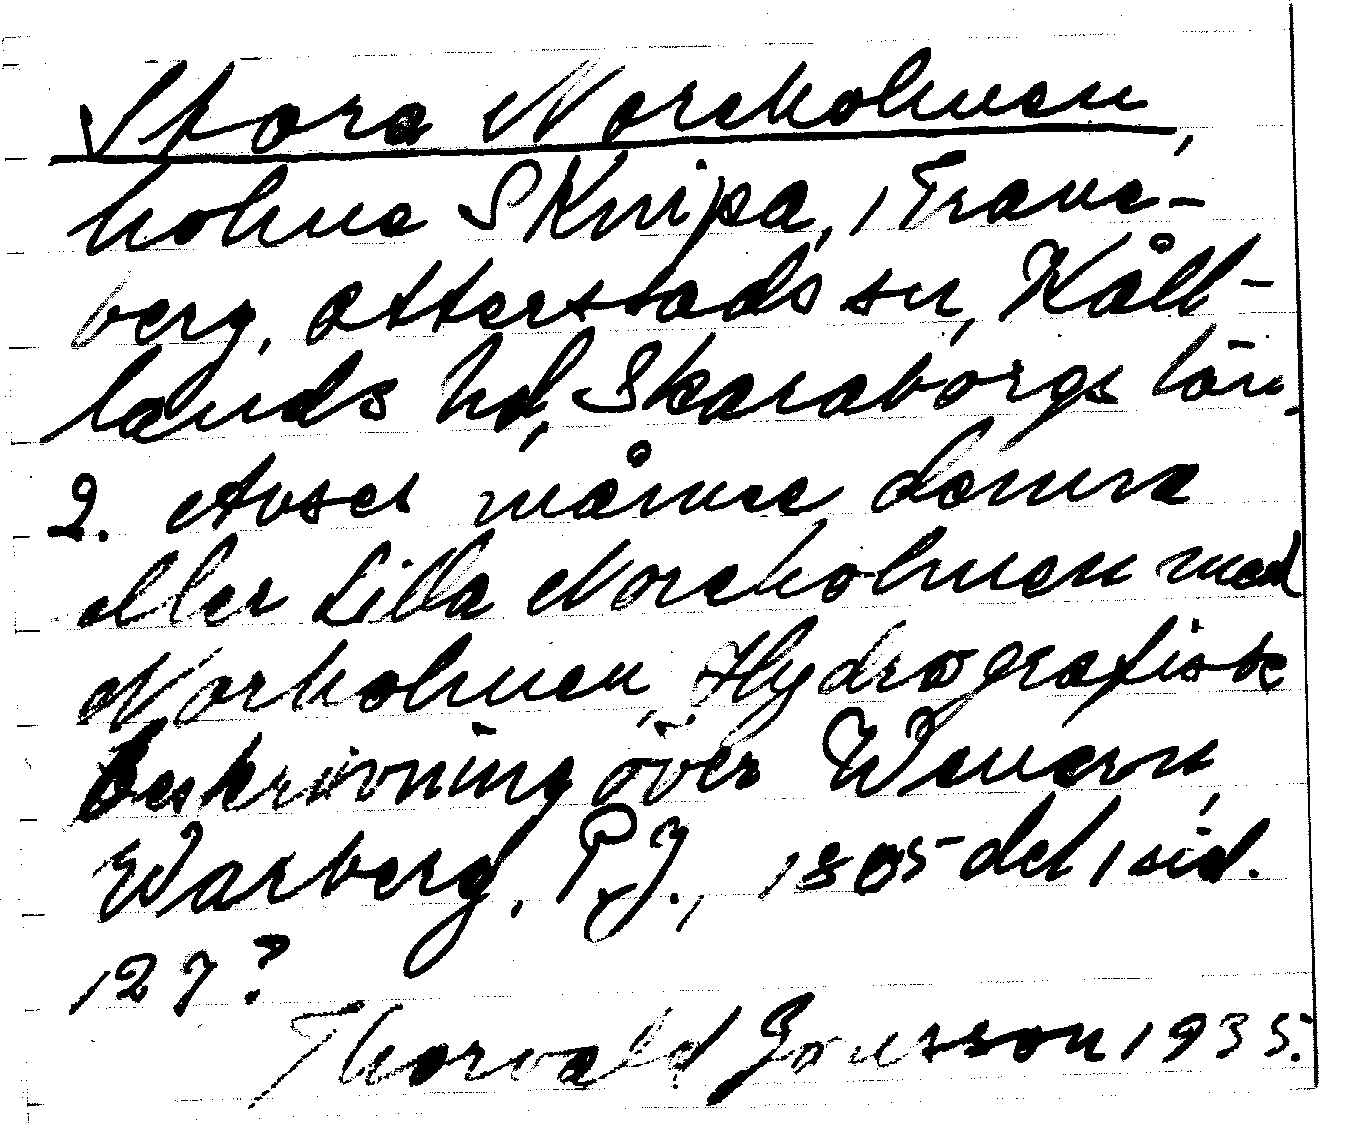 Stora Norekolmen,
holme S Knipa, 1 Trane-
berg, Otterstads sn, Kåll-
lands hd, Skaraborgs län.
2. Avses månne denna
eller Lilla Norekolmen med
Norkolmen, Hydrografisk
beskrivning över Wenern,
Warberg, P. J., 1805 del 1 sid.
127?
Thorvald Jonsson 1935.